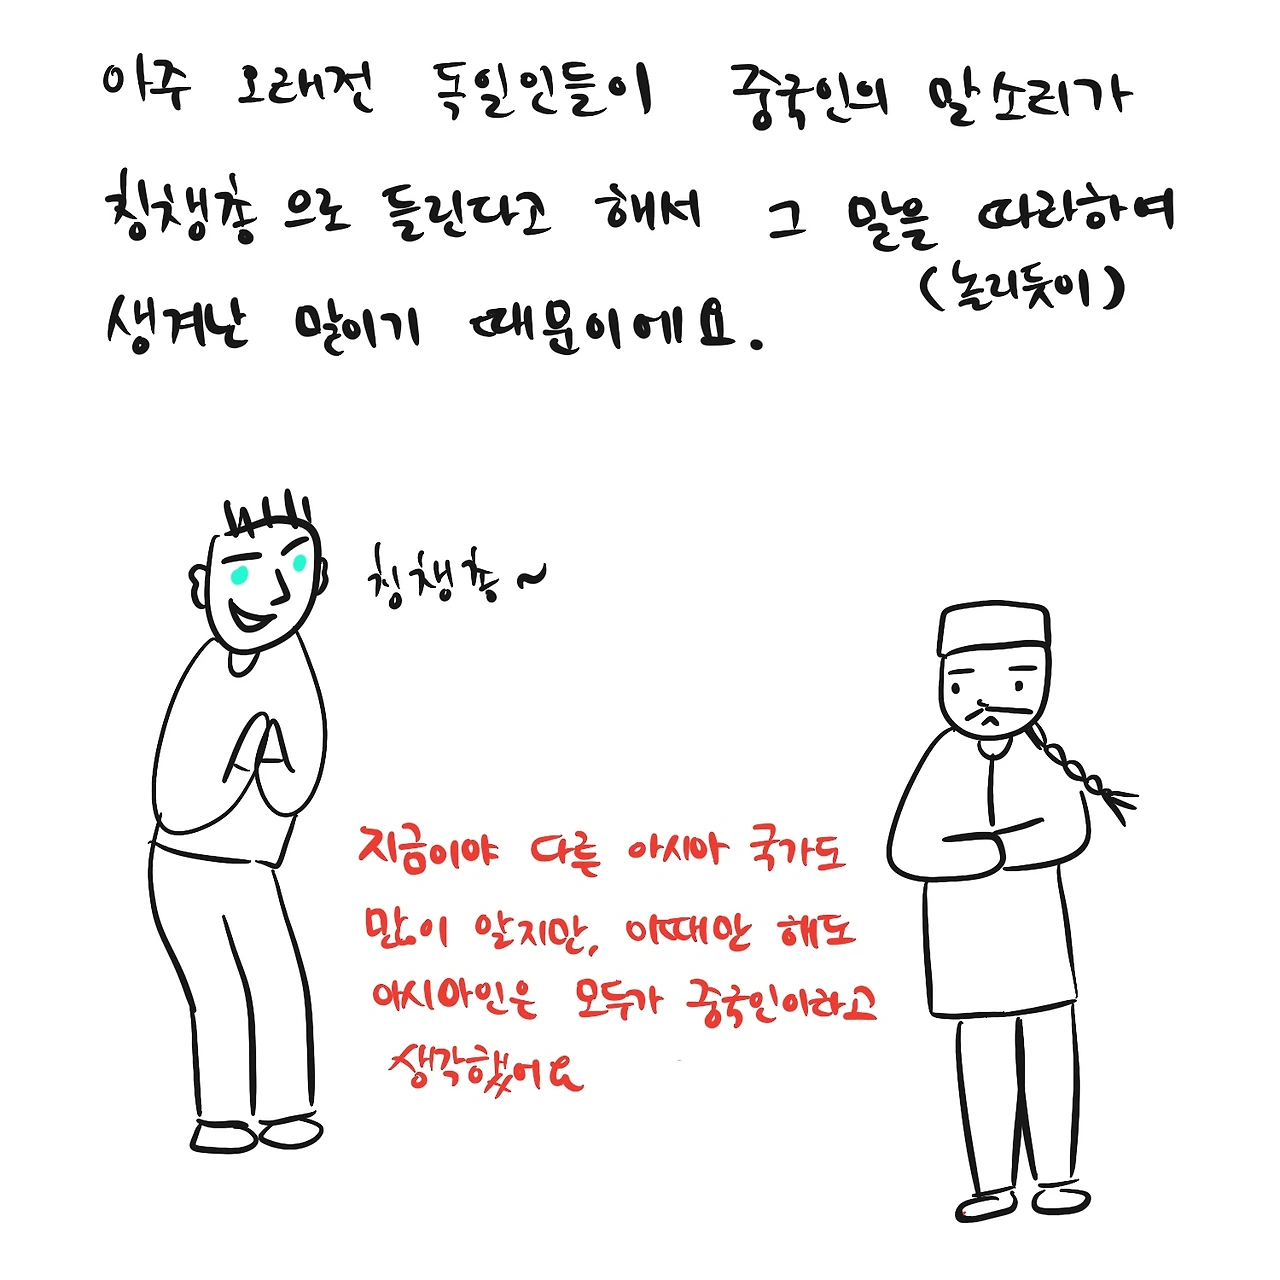 아주 오래전 독일인들이 중국인의 말소리가
칭챙총 으로 들린다고 해서 그 말을 따라하여
(놀리듯이)
생겨난 말이기 때문이에요.
칭챙총~
지금이야 다른 아시아 국가도
많이 알지만, 이때만 해도
아시아인은 모두가 중국인이라고
생각했어요